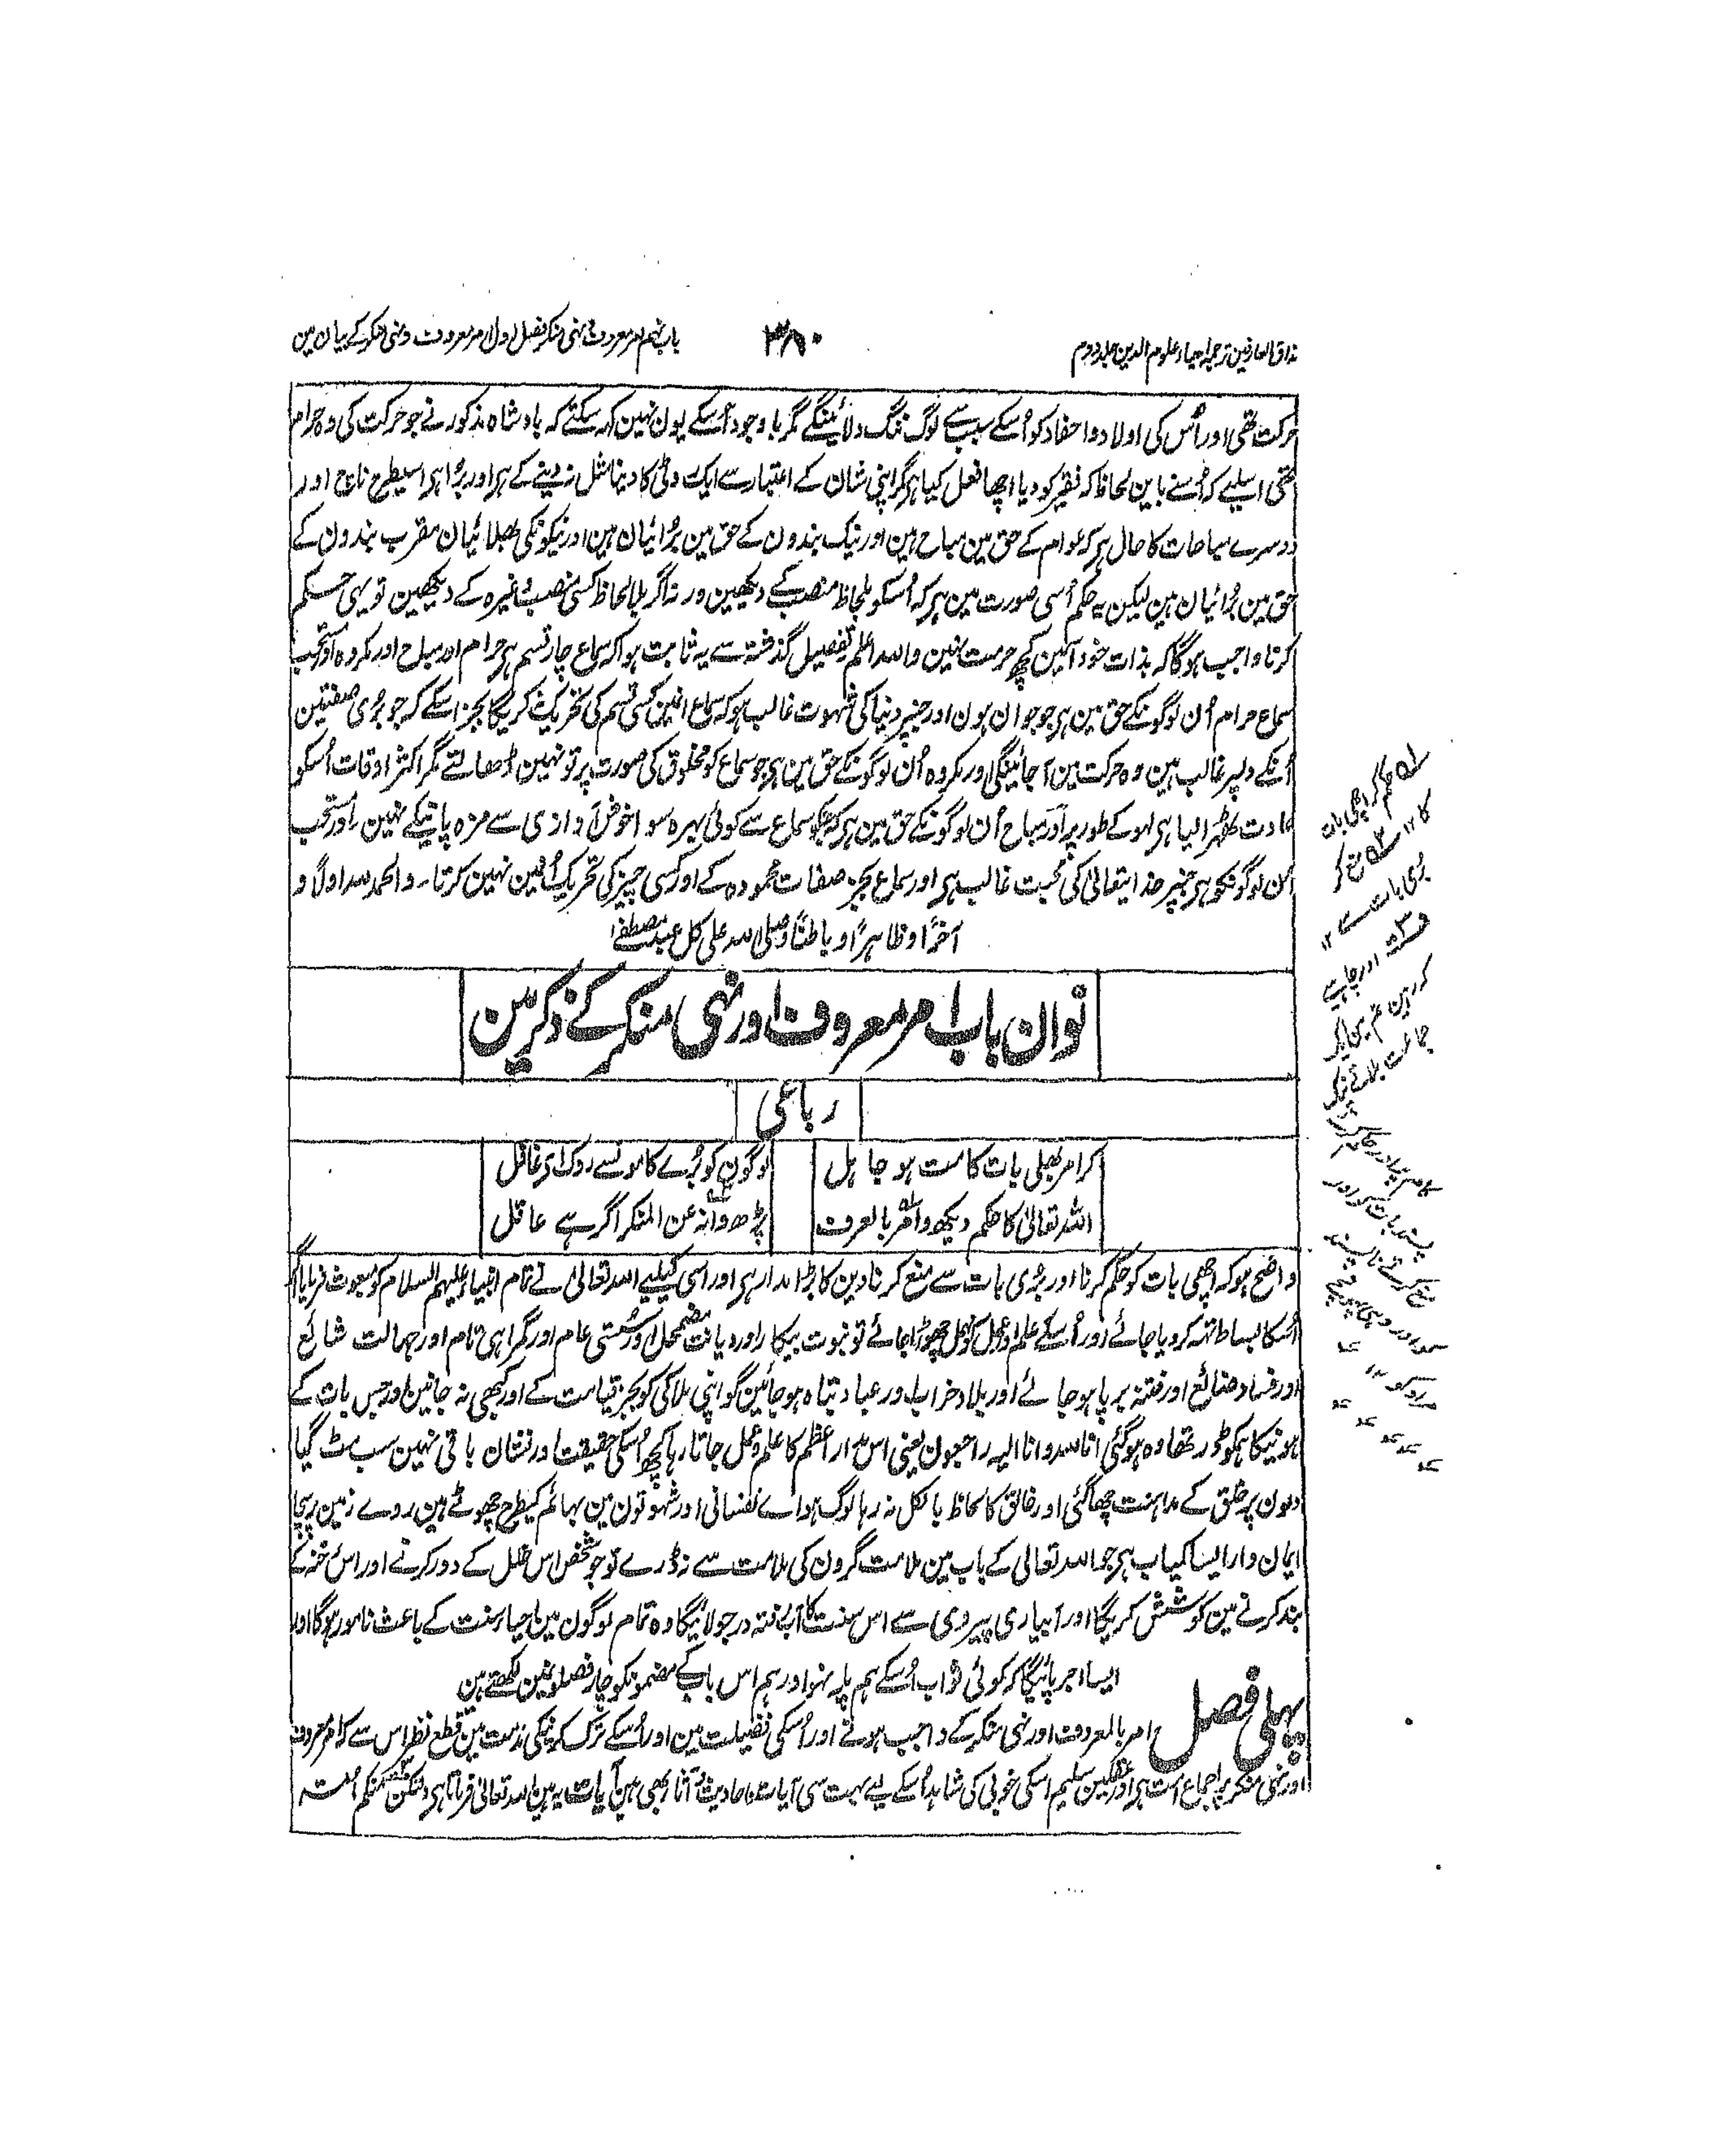 مذاق العارفین ترجمہ احیاء علوم الدین جلد دوم
۳۸۰
باب نہم امر معروف و نہی منکر فصل اول امر معروف و نہی منکر کے بیان مین
حرکت تھی اور اُس کی اولاد و احفاد کو اُسکے سبب سے لوگ ننگ دلائینگے مگر باوجود اُسکے یون نہین کہہ سکتے کہ بادشاہ مذکور نے جو حرکت کی وہ حرام
تھی اسلیے کہ اُسنے باین لحاظ کہ فقیر کو دیا اچھا فعل کیا ہی مگر اپنی شان کے اعتبار سے ایک روٹی کا دینا مثل نہ دینے کے ہی اور بُرا ہی اسیطرح ناچ اور
دوسرے مباحات کا حال ہی کہ عوام کے حق مین مباح ہین اور نیک بندون کے حق مین بُرائیان ہین اور نیکونکی بھلائیان مقرب بندون کے
حق مین بُرائیان ہین لیکن یہ حکم اُسی صورت مین ہی کہ اُسکو بلحاظ منصب کے دیکھین ورنہ اگر بلا لحاظ کسی منصب وغیرہ کے دیکھین تو یہی حکم
کرنا واجب ہوگا کہ بذات خود اسمین کچھ حرمت نہین واللہ اعلم تفصیل گذشتہ سے یہ ثابت ہوا کہ سماع چار قسم ہی حرام اور مباح اور مکروہ اور مستحب
سماع حرام اُن لوگونکے حق مین ہی جو جوان ہون اور جنپر دنیا کی شہوت غالب ہو کہ سماع انمین کسی قسم کی تحریک نکریگا بجز اسکے کہ جو بُری صفتین
اُنکے دلپر غالب ہین وہ حرکت مین آجائینگی اور مکروہ اُن لوگونکے حق مین ہی جو سماع کو مخلوق کی صورت پر تو نہین ڈھالتے مگر اکثر اوقات اُسکو
عادت ٹھہرالیا ہی لہو کے طور پر اور مباح اُن لوگونکے حق مین ہی کہ جنکو سماع سے کوئی بہرہ سوا خوش آوازی سے مزہ پانیکے نہین اور مستحب
اُن لوگونکو ہی جنپر خدا تعالیٰ کی محبت غالب ہی اور سماع بجز صفات محمودہ کے اور کسی چیز کی تحریک اُنمین نہین کرتا۔ والحمد للہ اولًا و
آخرًا و ظاہرًا و باطنًا و صلی اللہ علی کل عبد مصطفےٰ
نوان باب امر معروف اور نہی منکر کے ذکر مین
رباعی
کر امر بھلی بات کا مت ہو جاہل
لوگون کو بُرے کامونسے روک اے غافل
اللہ تعالیٰ کا حکم دیکھ وامر بالعرف
پڑھ وانہ عن المنکر اگر ہے عاقل
واضح ہو کہ اچھی بات کو حکم کرنا اور بُری بات سے منع کرنا دین کا بڑا مدار ہی اور اسی کیلیے اللہ تعالیٰ نے تمام انبیاء علیہم السلام کو مبعوث فرمایا اگر
اُسکا بساط تہ کر دیا جائے اور اُسکے علم و عمل کو مہمل چھوڑا جائے تو نبوت بیکار اور دیانت مضمحل اور سُستی عام اور گمراہی تام اور جہالت شائع
اور فساد ضائع اور فتنہ برپا ہو جائے اور بلاد خراب اور عباد تباہ ہو جائین گو اپنی ہلاکی کو بجز قیامت کے اور کبھی نہ جانین اور جس بات کے
ہونیکا ہمکو ڈر تھا وہ ہو گئی انا للہ وانا الیہ راجعون یعنی اس مدار اعظم کا علم و عمل جاتا رہا کچھ اُسکی حقیقت اور نشان باقی نہین سب مٹ گیا
دلون پر خلق کے مداہنت چھا گئی اور خالق کا لحاظ بالکل نہ رہا لوگ ہواے نفسانی اور شہوتون مین بہائم کیطرح چھوٹے ہین روے زمین پر سچا
ایمان دار ایسا کمیاب ہی جو اللہ تعالیٰ کے باب مین ملامت گرون کی ملامت سے نہ ڈرے تو جو شخص اس خلل کے دور کرنے اور اس رخنہ کے
بند کرنے مین کوشش کریگا اور آبیاری پیروی سے اس سنت کا آب رفتہ در جو لائیگا وہ تمام لوگون مین احیاء سنت کے باعث نامور ہوگا اور
ایسا اجر پائیگا کہ کوئی ثواب اُسکے ہم پلہ نہو اور ہم اس باب کے مضمونکو چار فصلونمین لکھتے ہین
پہلی فصل امر بالمعروف اور نہی منکر کے واجب ہونے اور اُسکی فضیلت مین اور اُسکے ترک کرنیکی مذمت مین قطع نظر اس سے کہ امر معروف
اور نہی منکر پر اجماع امت ہی اور عقلین سلیم اسکی خوبی کی شاہد اُسکے لیے بہت سی آیات و احادیث و آثار بھی ہین آیات یہ ہین اللہ تعالیٰ فرماتا ہی ولتکن منکم امتہ
لہ حکم کر اچھی بات
کا ۱۲ منع کر
بُری بات سے ۱۲
اور چاہیے
کہ رہین تم مین ایک
جماعت بلاتے نیک
کام پر اور حکم کرتے
پسند بات کو اور
منع کرتے ناپسند
سے اور وہی پہونچے
مراد کو ۱۲